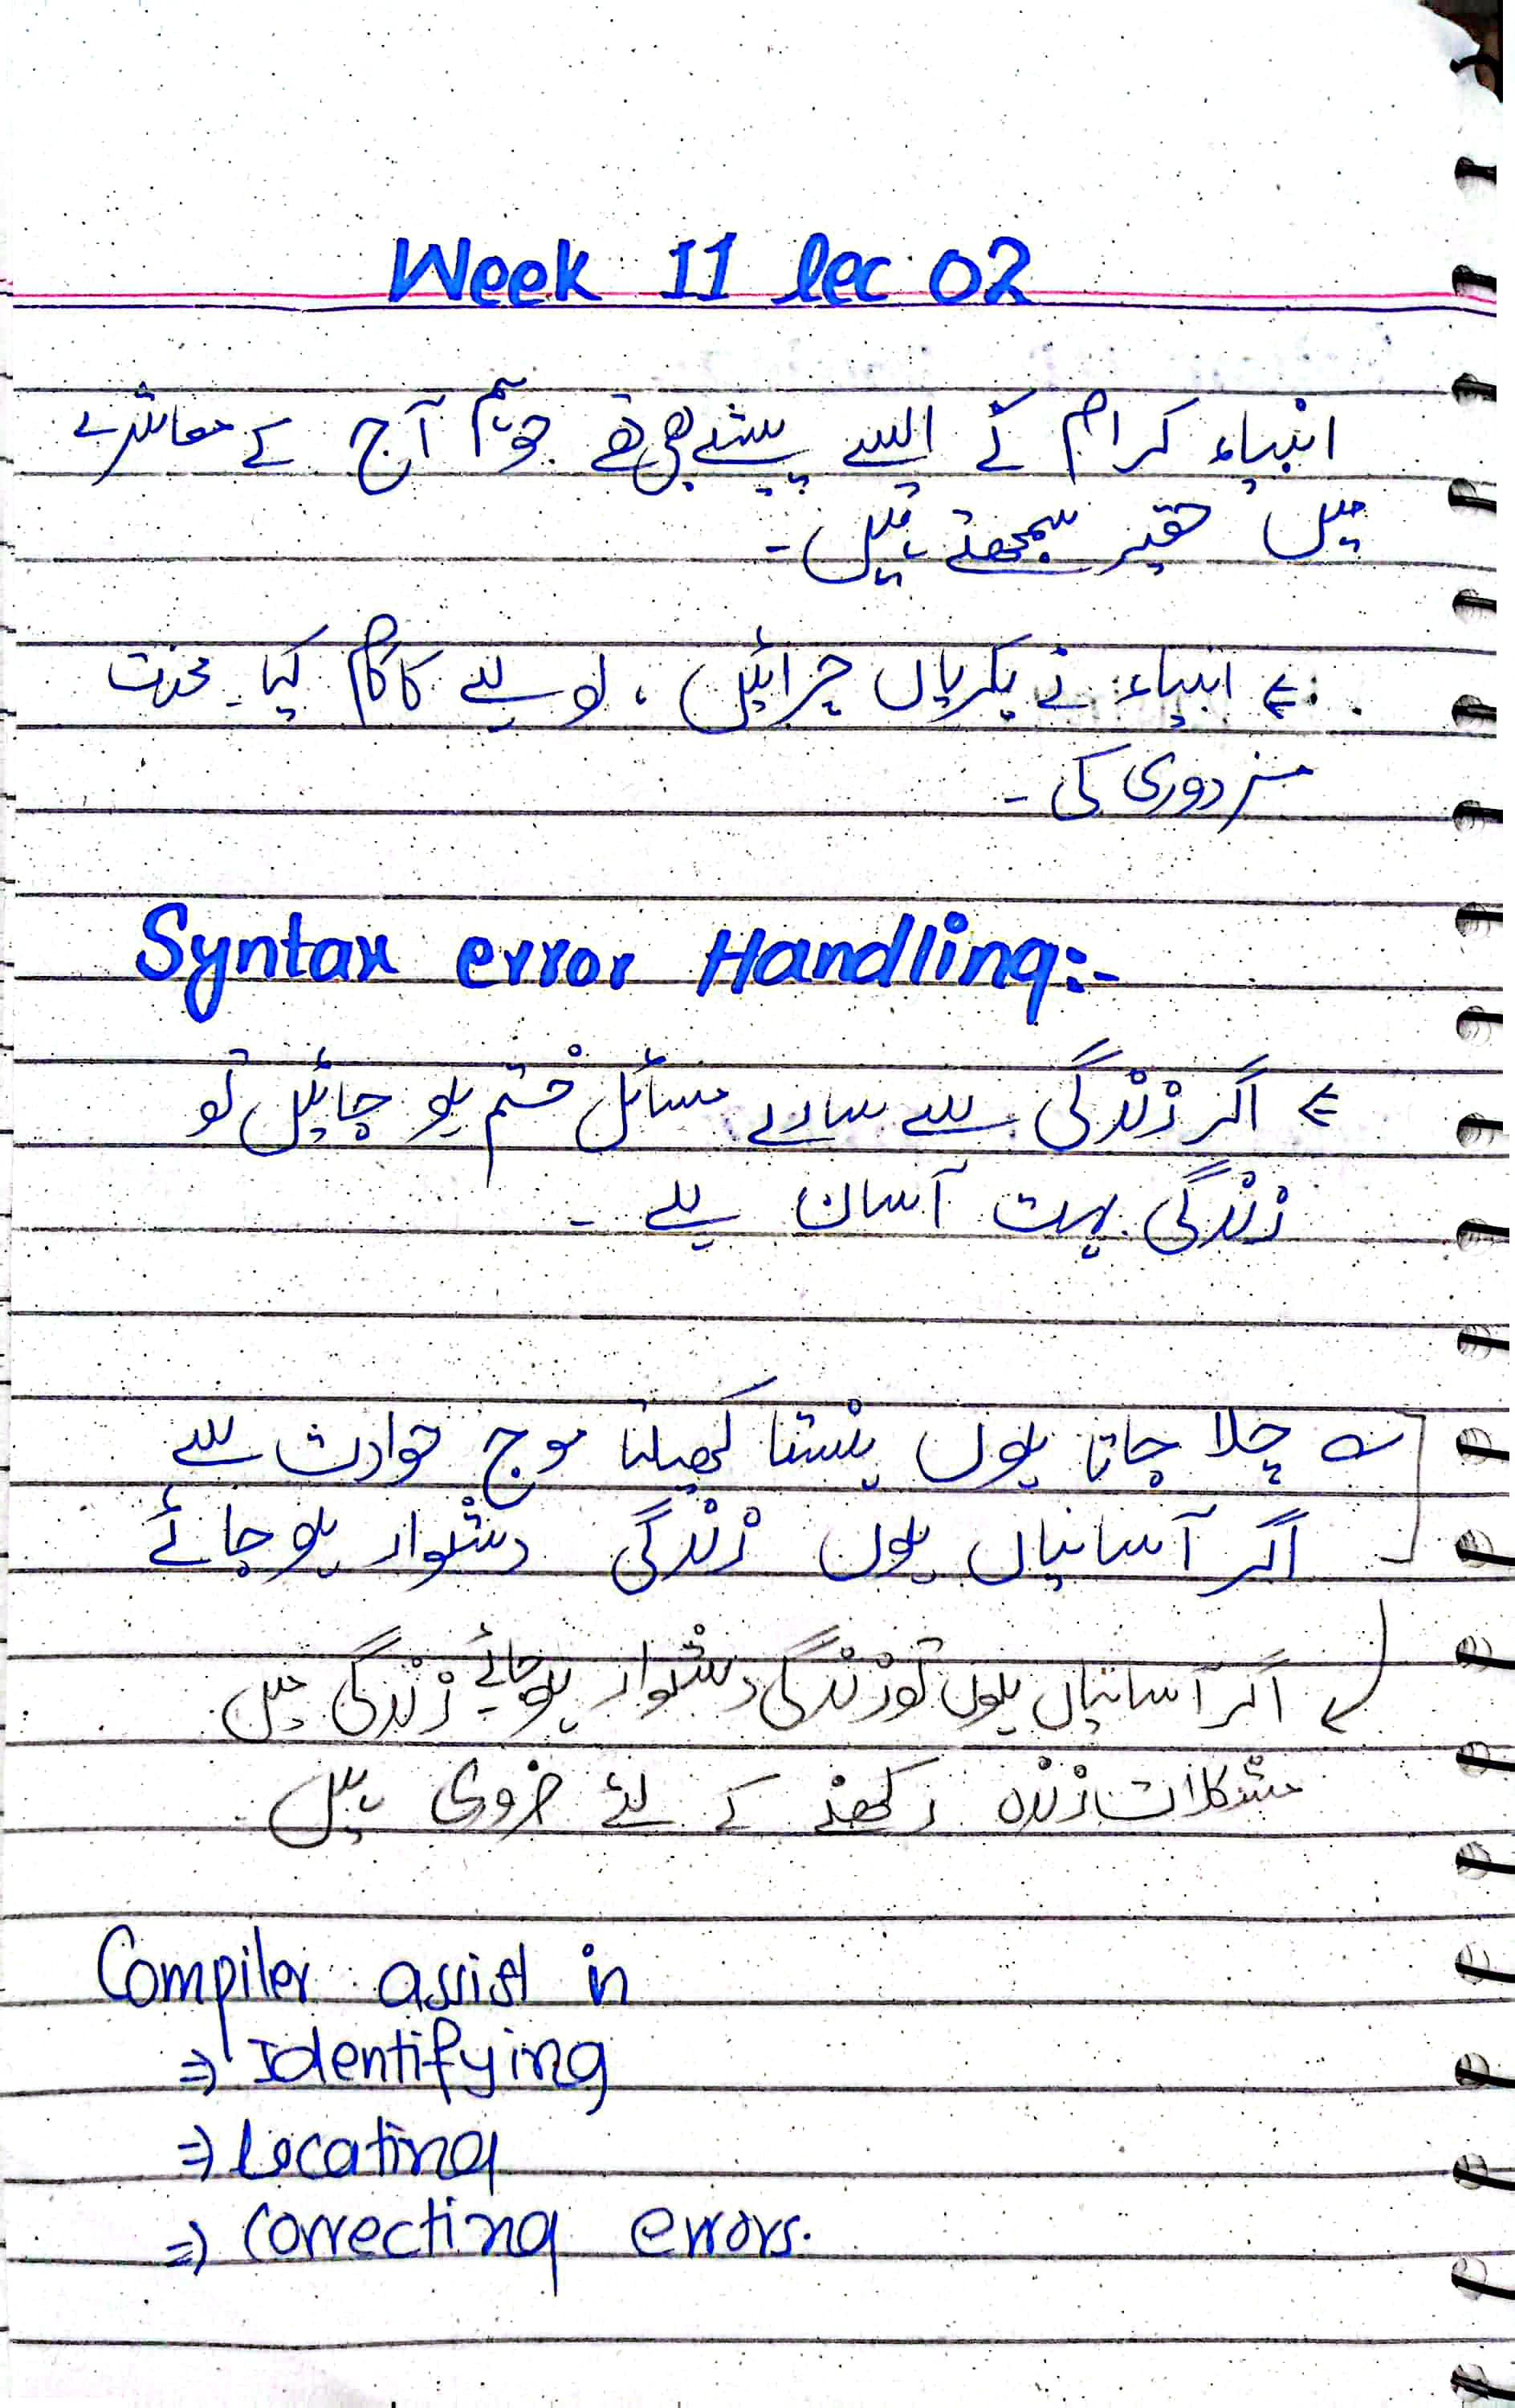 Week 11 lec 02
انبیاء کرام کے ایسے پیشے بھی تھے جو ہم آج کے معاشرے
میں حقیر سمجھتے ہیں۔
⇐ انبیاء نے بکریاں چرائیں، لوہے کا کام کیا۔ محنت
مزدوری کی۔
Syntax error Handling:-
⇐ اگر زندگی سے سارے مسائل ختم ہو جائیں تو
زندگی بہت آسان ہے۔
؎ چلا جاتا ہوں ہنستا کھیلتا موج حوادث سے
اگر آسانیاں ہوں زندگی دشوار ہو جائے
اگر آسانیاں ہوں تو زندگی دشوار ہو جائے زندگی میں
مشکلات زندہ رکھنے کے لئے ضروری ہیں۔
Compiler assist in
⇒ Identifying
⇒ Locating
⇒ Correcting errors.